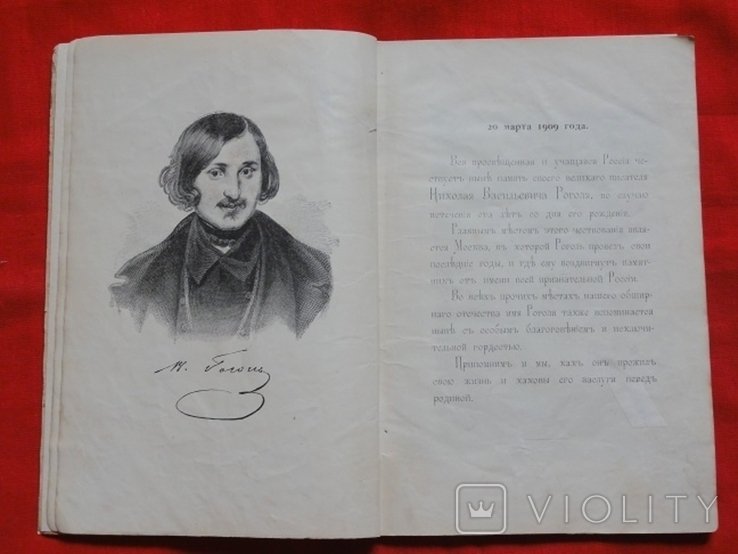 Н. Гоголь
20 марта 1909 года.
Вся просвѣщенная и учащаяся Россія че-
ствуетъ нынѣ память своего великаго писателя
Николая Васильевича Гоголя, по случаю
истеченія ста лѣтъ со дня его рожденія.
Главнымъ мѣстомъ этого чествованія явля-
ется Москва, въ которой Гоголь провелъ свои
послѣдніе годы, и гдѣ ему воздвигнутъ памят-
никъ отъ имени всей признательной Россіи.
Во всѣхъ прочихъ мѣстахъ нашего обшир-
наго отечества имя Гоголя также вспоминается
нынѣ съ особымъ благоговѣніемъ и исключи-
тельной гордостью.
Припомнимъ и мы, какъ онъ прожилъ
свою жизнь и каковы его заслуги передъ
родиной.
VIOLITY